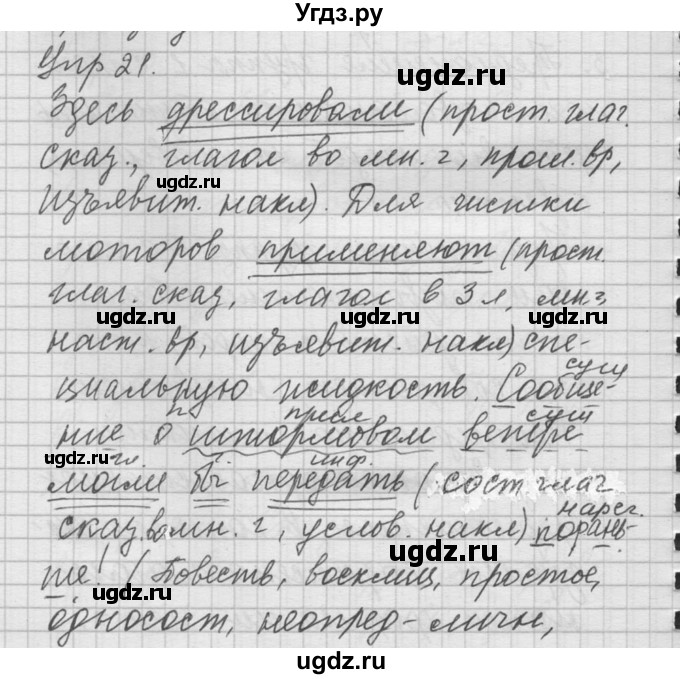 Угдз.ру
Упр 21.
ugdz.ru
Здесь дрессировали (прост. глаг.
ugdz.ru
сказ., глагол во мн. ч, прош. вр,
ugdz.ru
изъявит. накл). Для чистки
ugdz.ru
моторов применяют (прост.
глаг. сказ, глагол в 3 л, мн.ч,
ugdz.ru ugdz.ru
наст. вр, изъявит. накл) спе-
сущ
циальную жидкость. Сообще-
ugdz.ru
п. прил сущ
ние о штормовом ветре
ugdz.ru
гл. ч. инф.
могли бы передать (сост глаг
нареч.
сказ, во мн. ч, услов. накл) порань-
ugdz.ru ugdz.ru
ше! (Повеств, восклиц, простое,
ugdz.ru
односост, неопред-личн,
ugdz.ru